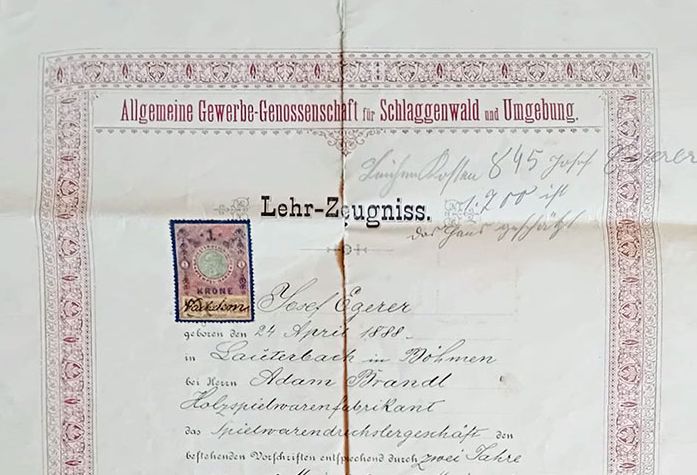 Allgemeine Gewerbe-Genossenschaft für Schlaggenwald und Umgebung.
Leichen Kosten 845 Josef Egerer
1.700 ist
das Haus geschätzt
Lehr-Zeugniss.
1
KRONE
Nachdem
Josef Egerer
geboren den 24 April 1888
in Lauterbach in Böhmen
bei Herrn Adam Brandl
Holzspielwarenfabrikant
das Spielwarendrechslergeschäft den
bestehenden Vorschriften entsprechend durch zwei Jahre